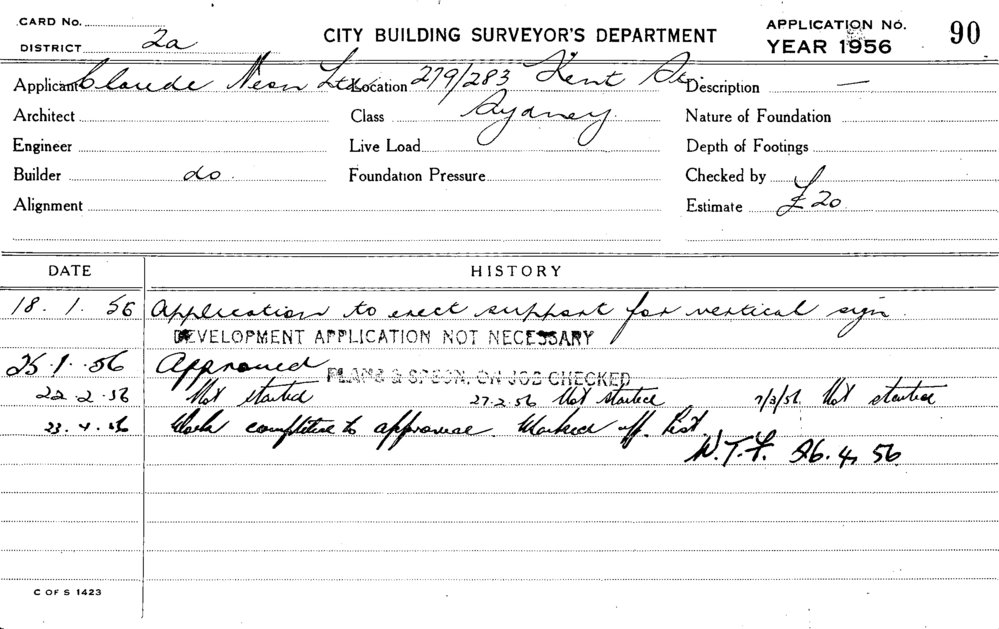 CARD No.
DISTRICT 2a
CITY BUILDING SURVEYOR'S DEPARTMENT
APPLICATION No. 90
YEAR 1956
Applicant Claude Neon Ltd. Location 279/283 Kent St. Description —
Architect Class Sydney. Nature of Foundation
Engineer Live Load Depth of Footings
Builder do. Foundation Pressure Checked by
Alignment Estimate £20
DATE HISTORY
18. 1. 56 Application to erect support for vertical sign.
DEVELOPMENT APPLICATION NOT NECESSARY
25.1.56 Approved
PLANS & SPECN. ON JOB CHECKED
22.2.56 Not started 27.2.56 Not started 7/3/56 Not started
23.4.56 Work completed to approval. Marked off list.
W.T.F. 26.4.56
C OF S 1423